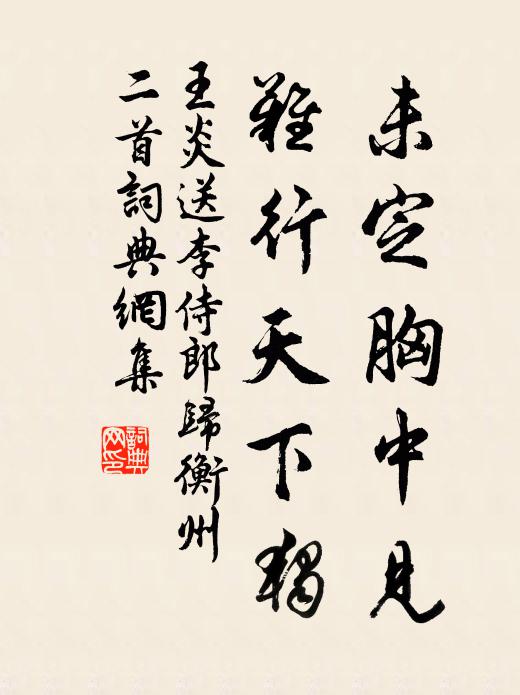 未定胸中見
難行天下獨
王炎送李侍郎歸衡州
二首詞典網集
詞典
网印